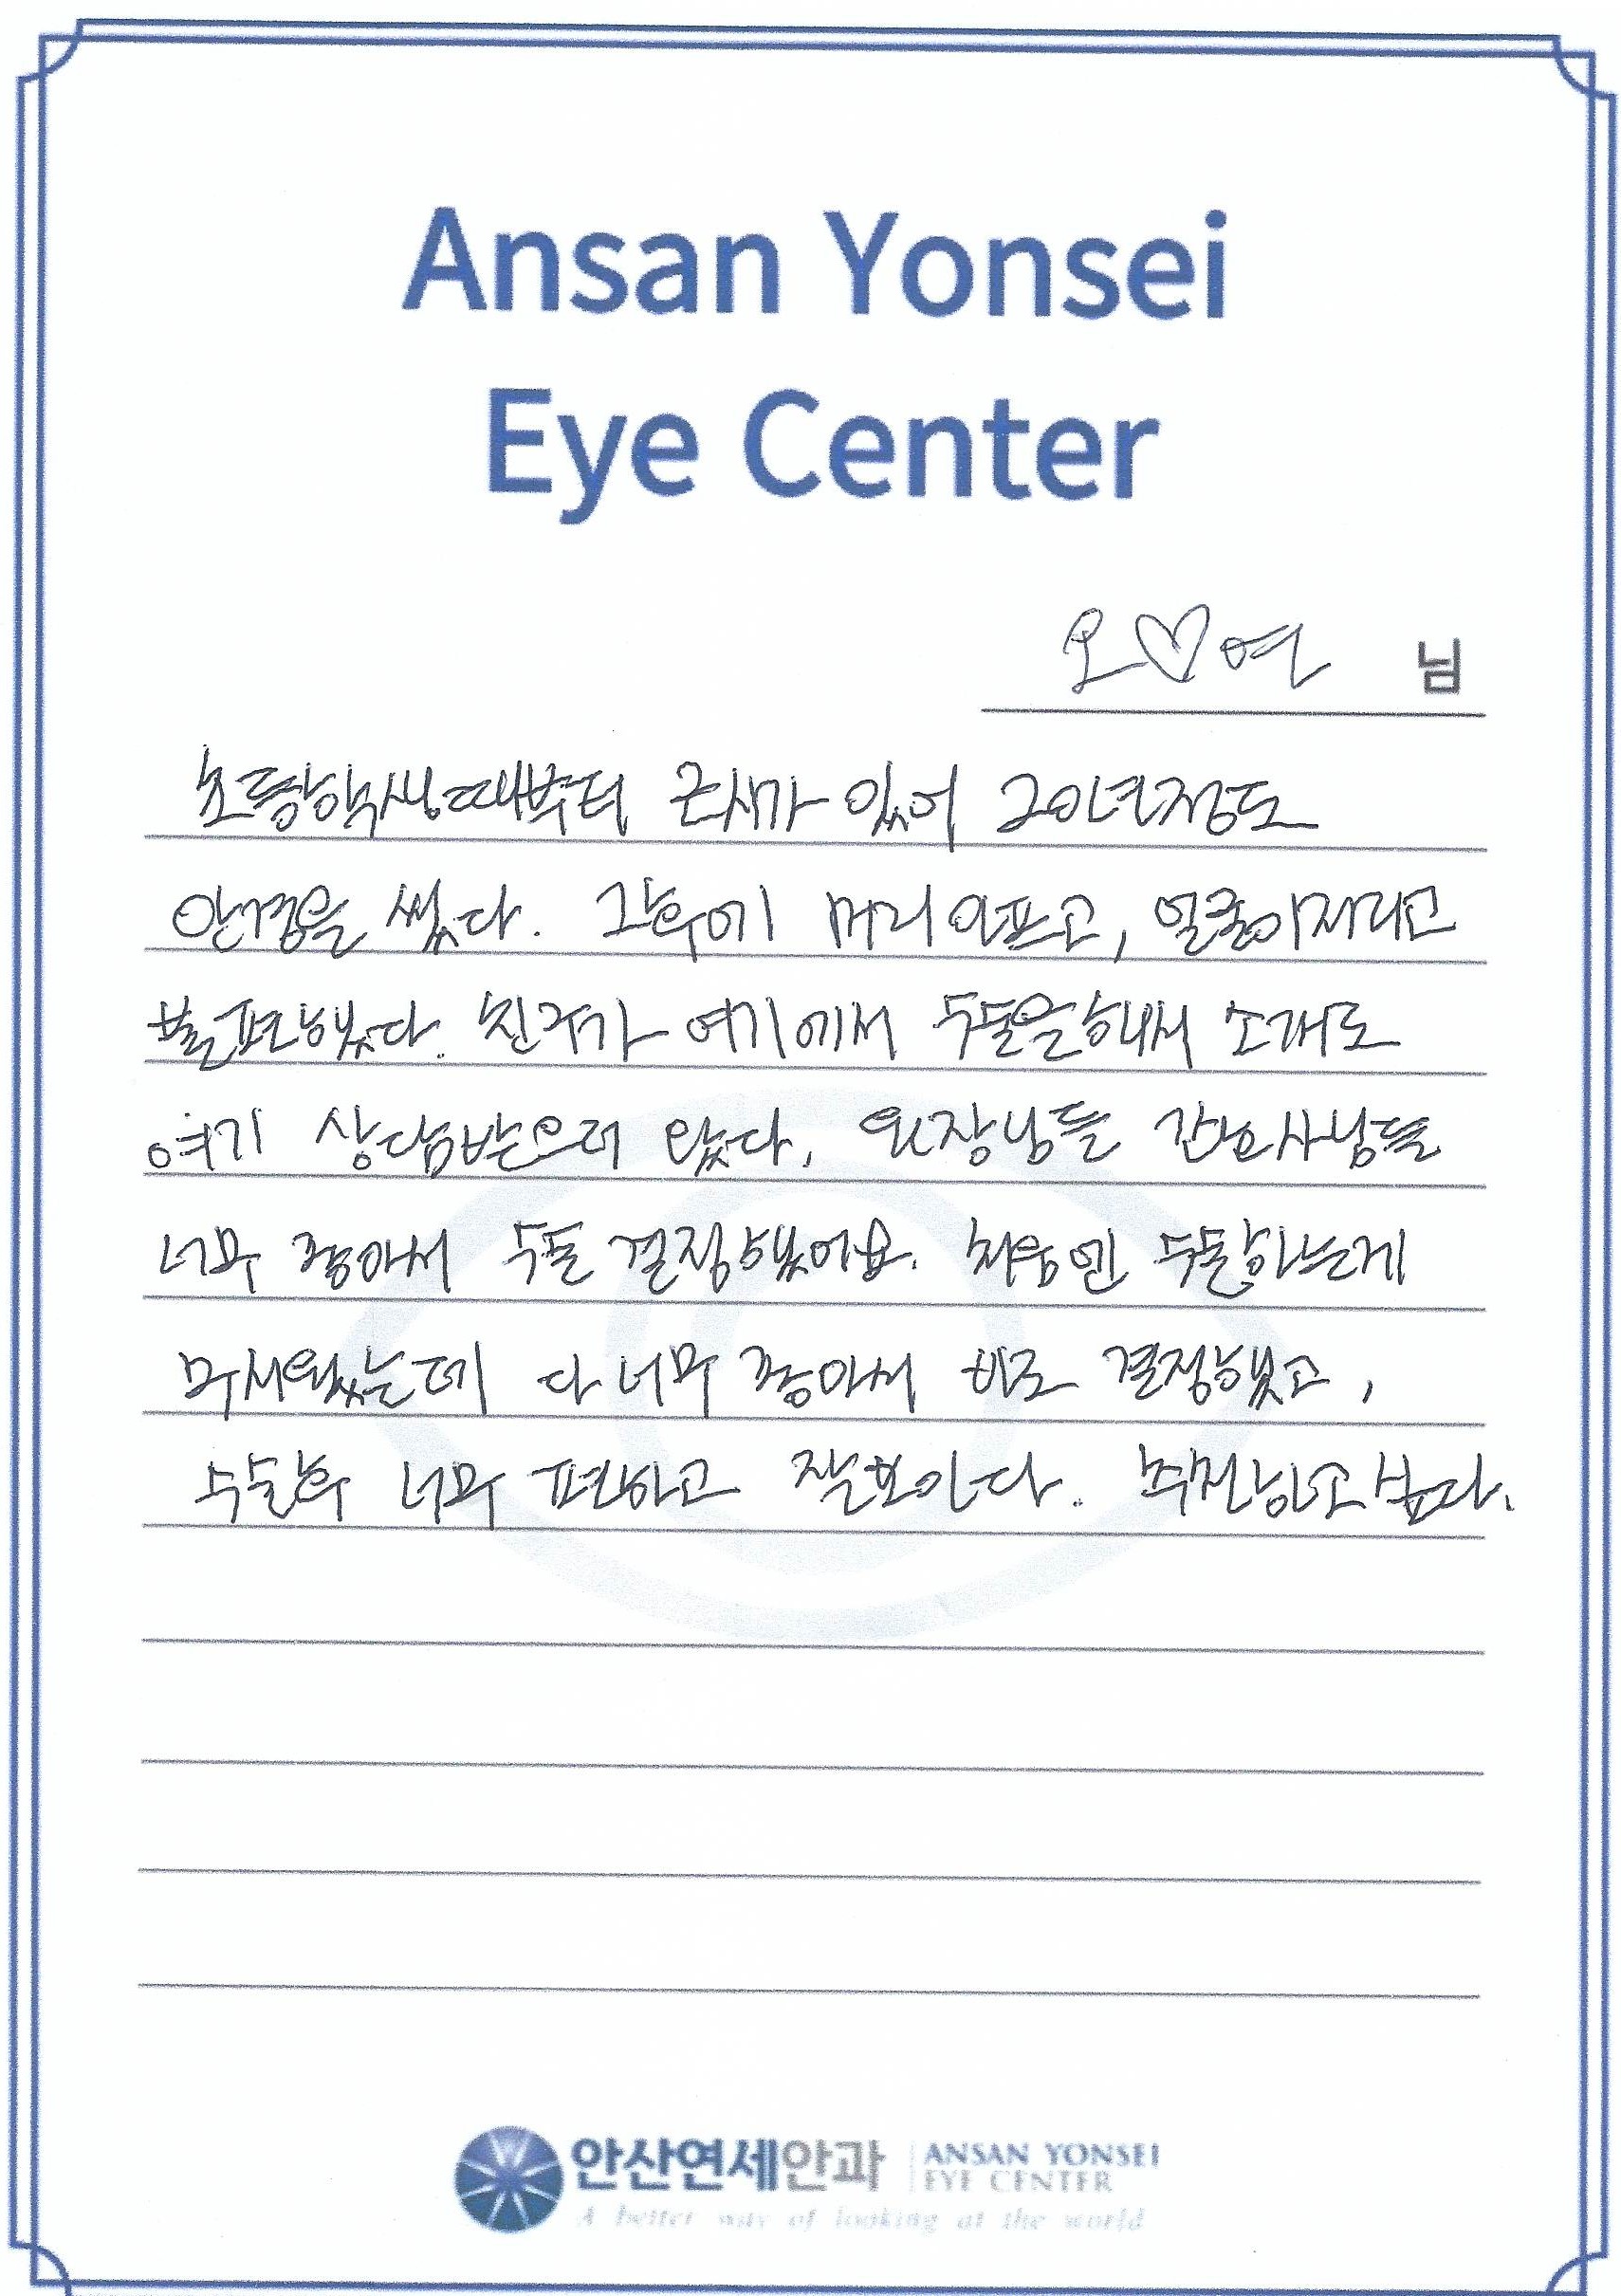 Ansan Yonsei
Eye Center
오♡연 님
초등학생때부터 근시가 있어 20년정도
안경을 썼다. 그후에 머리아프고, 얼굴이저리고
불편했다. 친구가 여기에서 수술을해서 소개로
여기 상담받으러 왔다. 원장님들 간호사님들
너무 좋아서 수술 결정했어요. 처음엔 수술하는게
무서웠는데 다 너무 좋아서 바로 결정했고,
수술후 너무 편하고 잘보인다. 추천하고싶다.
안산연세안과 ANSAN YONSEI
EYE CENTER
A better way of looking at the world